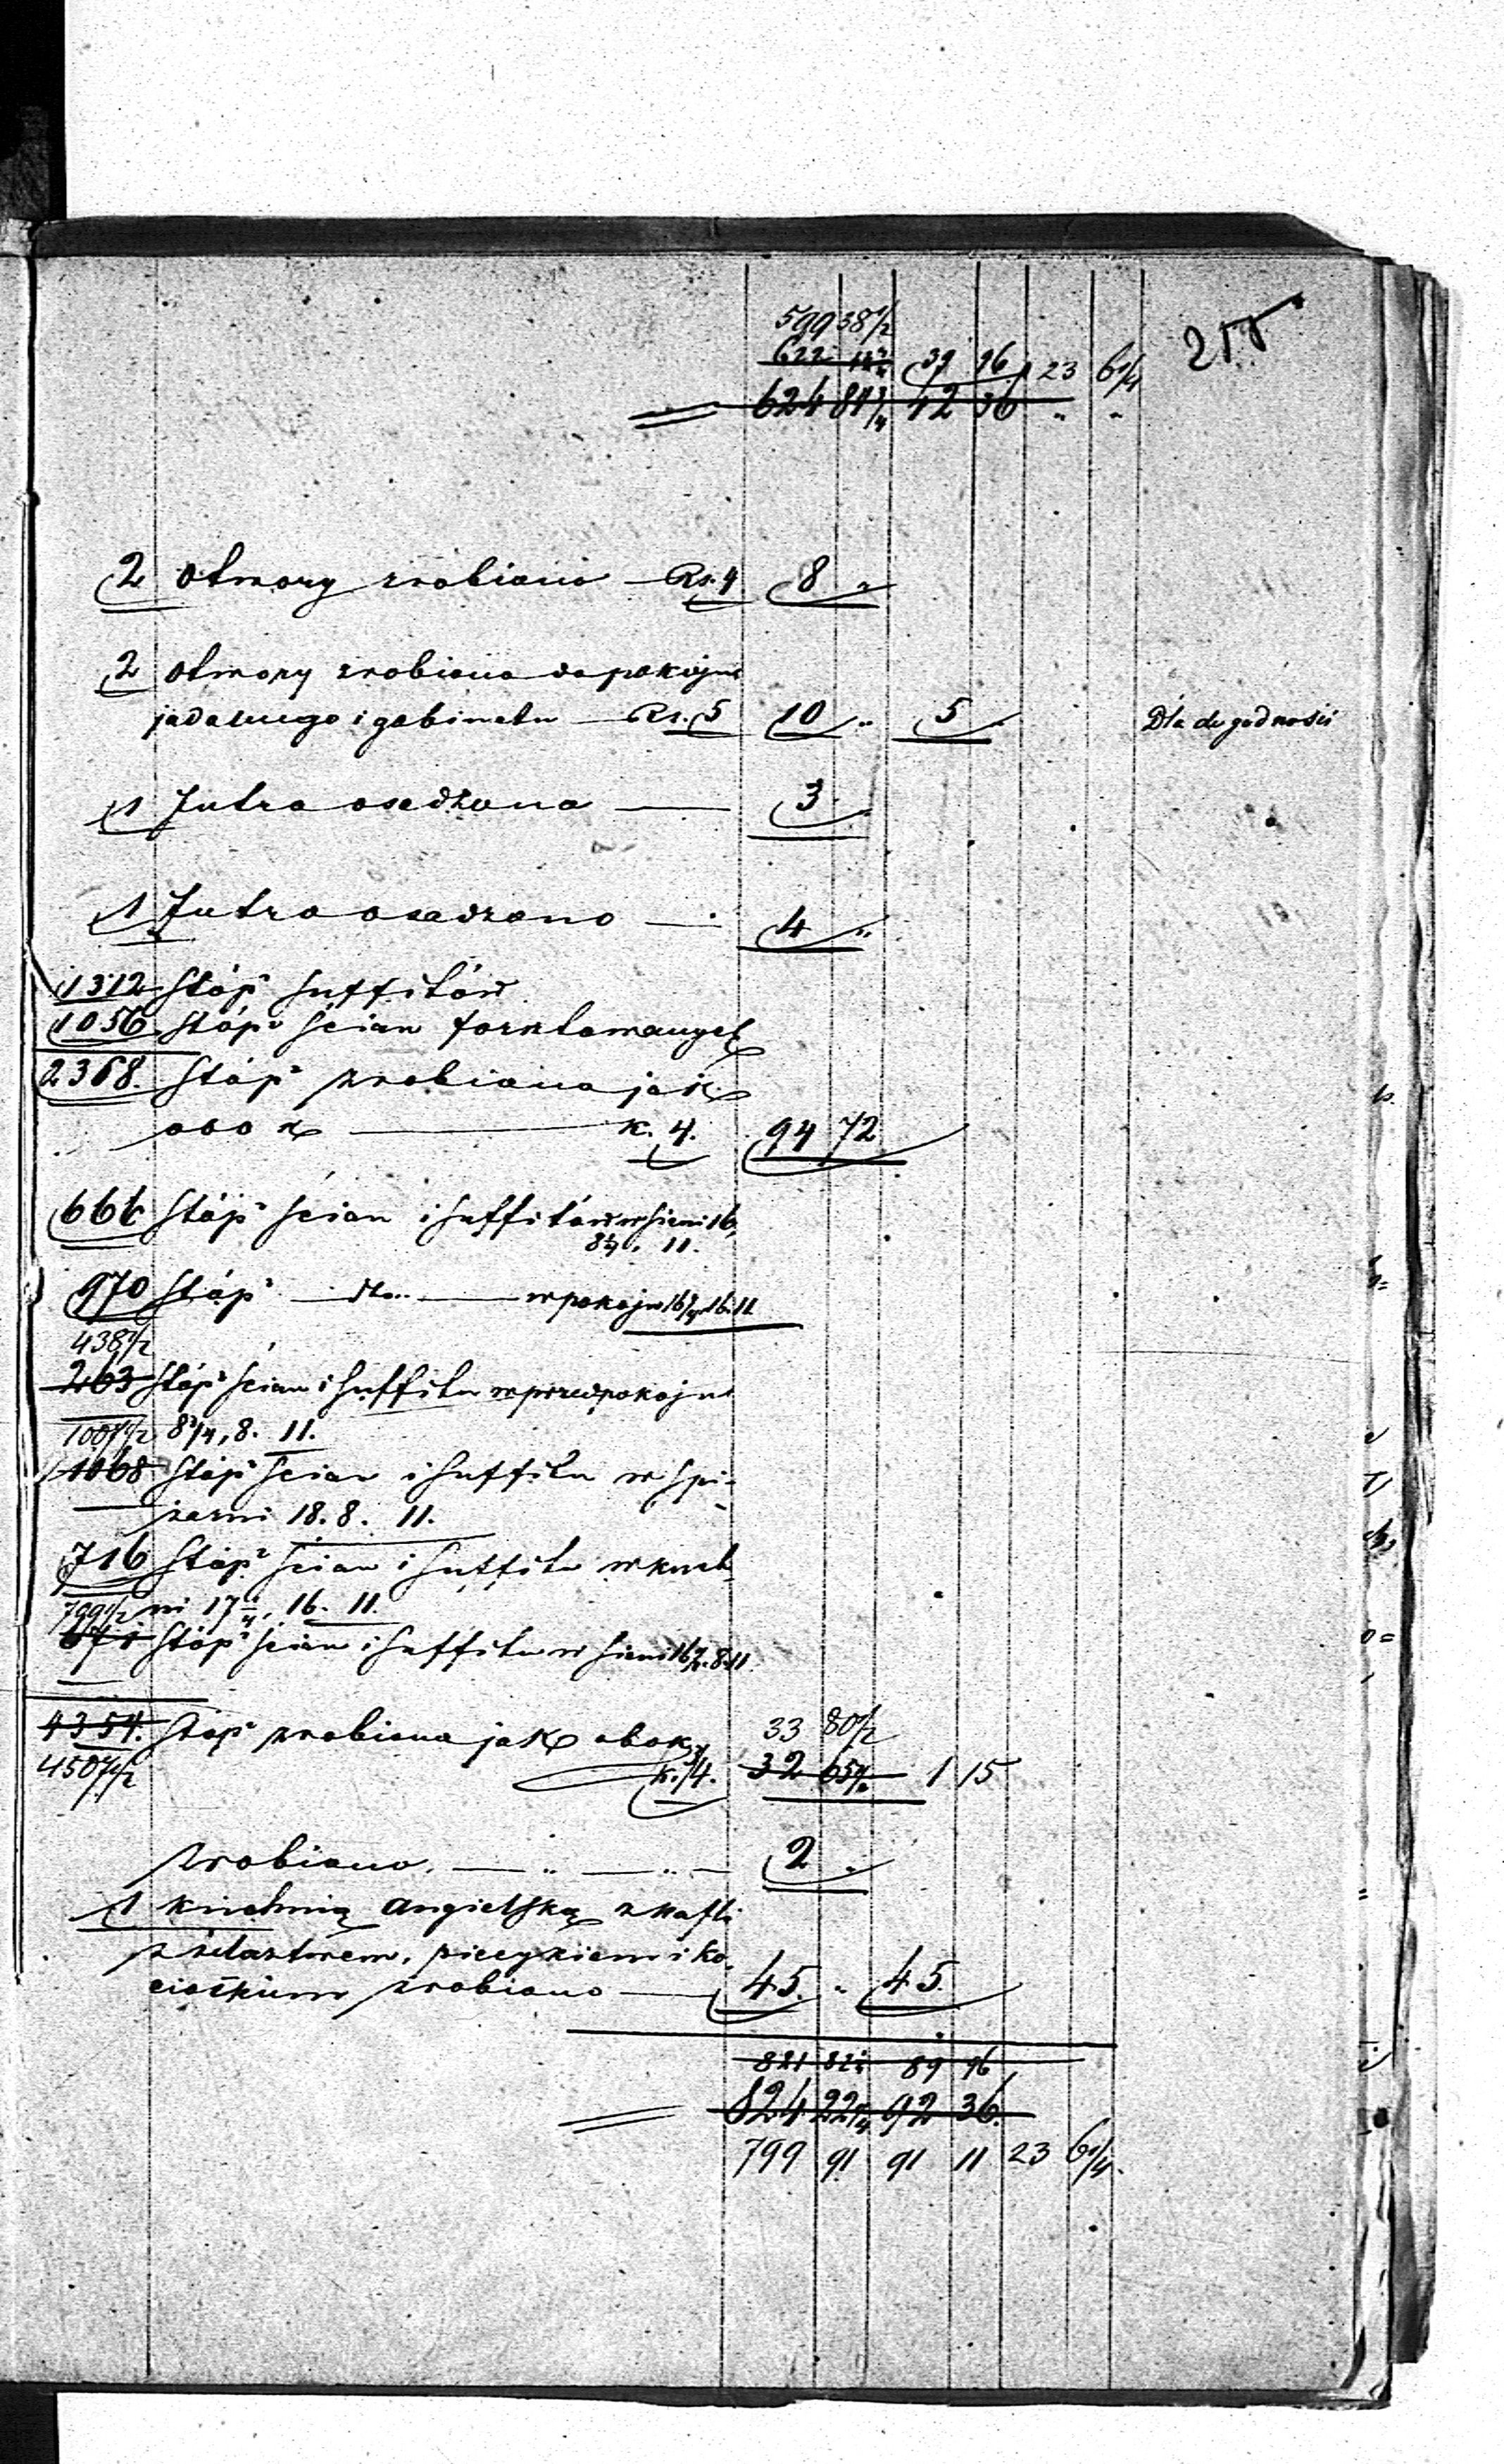 599 38 1/2
622 39 96 23 6 1/4
624 81 3/4 42 36 " "
2 otwory zrobiono — Rs. 4 8 "
2 otwory zrobiono do pokoju
jadalnego i gabinetu — Rs. 5 10 " 5 " Dla dogodności
1 Futro osadzono — 3 "
1 Futro osadzono — 4 "
1312 Stóp² suffitów
1056 stóp² ścian
2368. Stóp² zrobiono jak
obok — k. 4. 94 72
666 Stóp² ścian i suffitów w sieni 16,
8 3/4. 11.
970 Stóp² — dto — w pokoju 16 3/4 16. 11
438 1/2
263 Stóp² ścian i suffitu w przedpokoju
8 3/4, 8. 11.
1068 Stóp² ścian i suffitu w spi-
żarni 18. 8. 11.
716 Stóp² ścian i suffitu w kuch-
799 1/2 ni 17 1/4, 16. 11.
671 Stóp² ścian i suffitu w sieni 16 8. 11
4354. Stóp² zrobiono jak obok 33 80 1/2
4507 1/2 k. 3/4. 32 65 1/2 1 15
zrobiono. — " — " — 2 "
1 kuchnię angielską z kafli
z żelaztwem, piecykiem i ko-
ciołkiem zrobiono — 45. " 45.
821 89 96
824 22 1/4 92 36.
799 91 91 11 23 6 1/4.